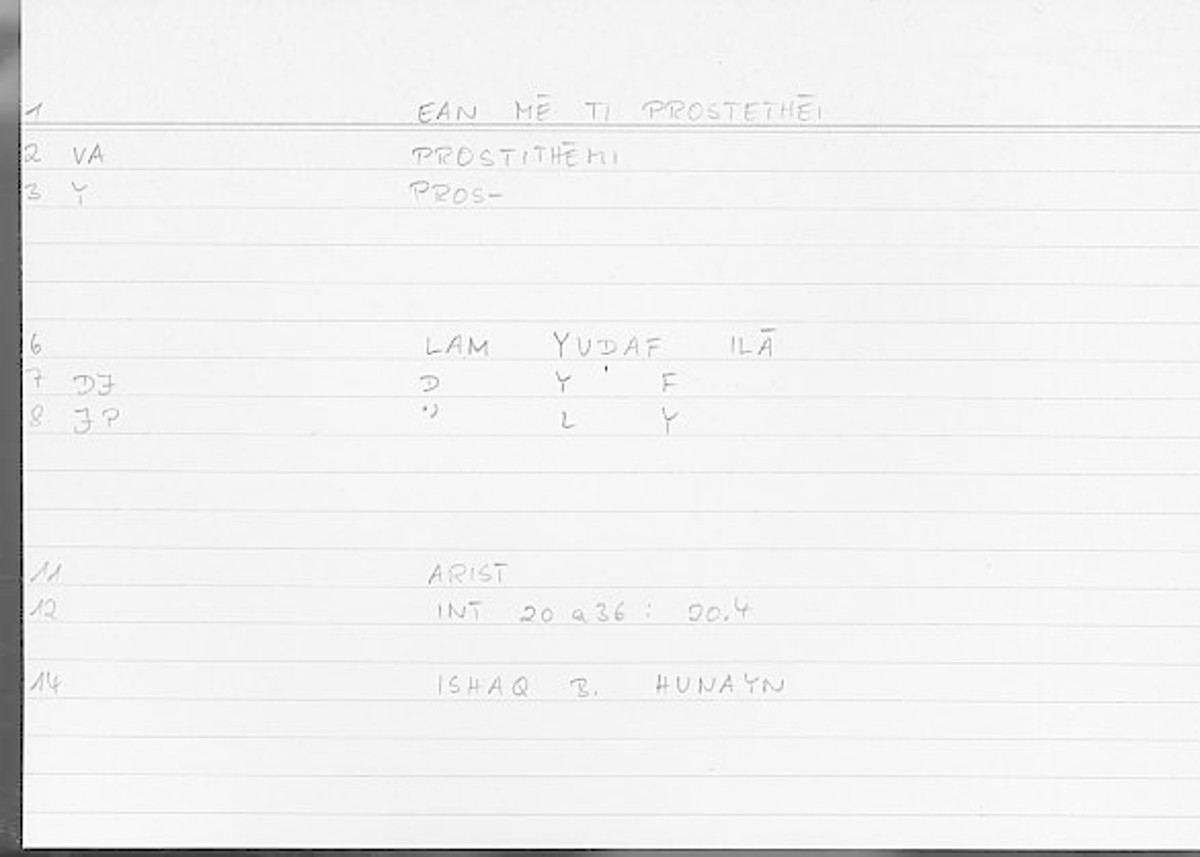 1 EAN MĒ TI PROSTETHĒI
2 VA PROSTITHĒMI
3 Y PROS-
6 LAM YUḌAF ILĀ
7 DJ D Y F
8 JP " L Y
11 ARIST
12 INT 20 a36 : 20.4
14 ISHAQ B. HUNAYN